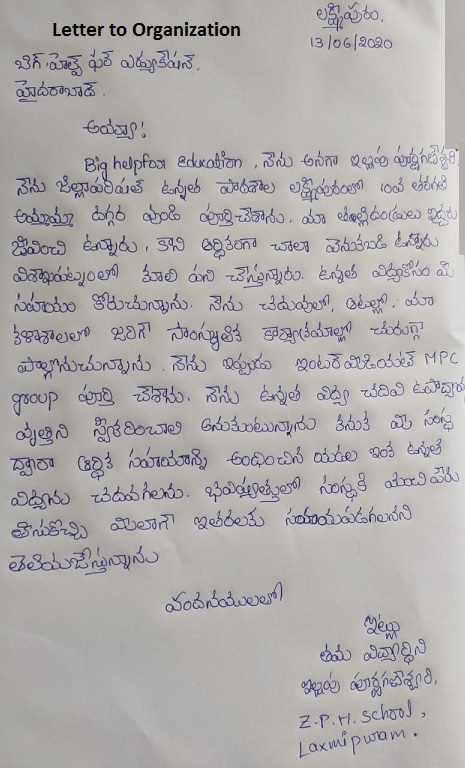 Letter to Organization
లక్ష్మీపురం,
13/06/2020
బిగ్ హెల్ప్ ఫర్ ఎడ్యుకేషన్,
హైదరాబాద్.
అయ్యా!
Big helpfor education, నేను అనగా ఇల్లపు పూర్ణగణేశ్వరి
నేను జిల్లాపరిషత్ ఉన్నత పాఠశాల లక్ష్మీపురంలో 10వ తరగతి
అమ్మమ్మ దగ్గర వుండి పూర్తిచేశాను. మా తల్లిదండ్రులు ఇద్దరు
జీవించి ఉన్నారు, కాని ఆర్థికంగా చాలా వెనుకబడి ఉన్నారు
విశాఖపట్నంలో కూలి పని చేస్తున్నారు. ఉన్నత విద్యకోసం మీ
సహాయం కోరుచున్నాను. నేను చదువులో, ఆటల్లో, మా
కళాశాలలో జరిగే సాంస్కృతిక కార్యక్రమాల్లో చురుగ్గా
పాల్గొనుచున్నాను. నేను ఇప్పుడు ఇంటర్మీడియట్ MPC
group పూర్తి చేశాను. నేను ఉన్నత విద్య చదివి ఉపాధ్యాయ
వృత్తిని స్వీకరించాలి అనుకుంటున్నాను కనుక మీ సంస్థ
ద్వారా ఆర్థిక సహాయాన్ని అందించిన యడల ఇంకా ఉన్నత
విద్యను చదవగలను. భవిష్యత్తులో సంస్థకి మంచి పేరు
తీసుకొచ్చి మీలాగే ఇతరులకు సహాయపడగలనని
తెలియజేస్తున్నాను
వందనములతో
ఇట్లు
తమ విద్యార్థిని
ఇల్లపు పూర్ణగణేశ్వరి,
Z.P.H. School,
Laxmipuram.